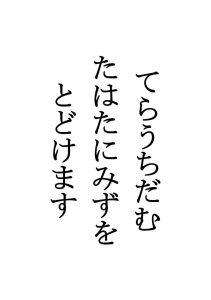 てらうちだむ
たはたにみずを
とどけます